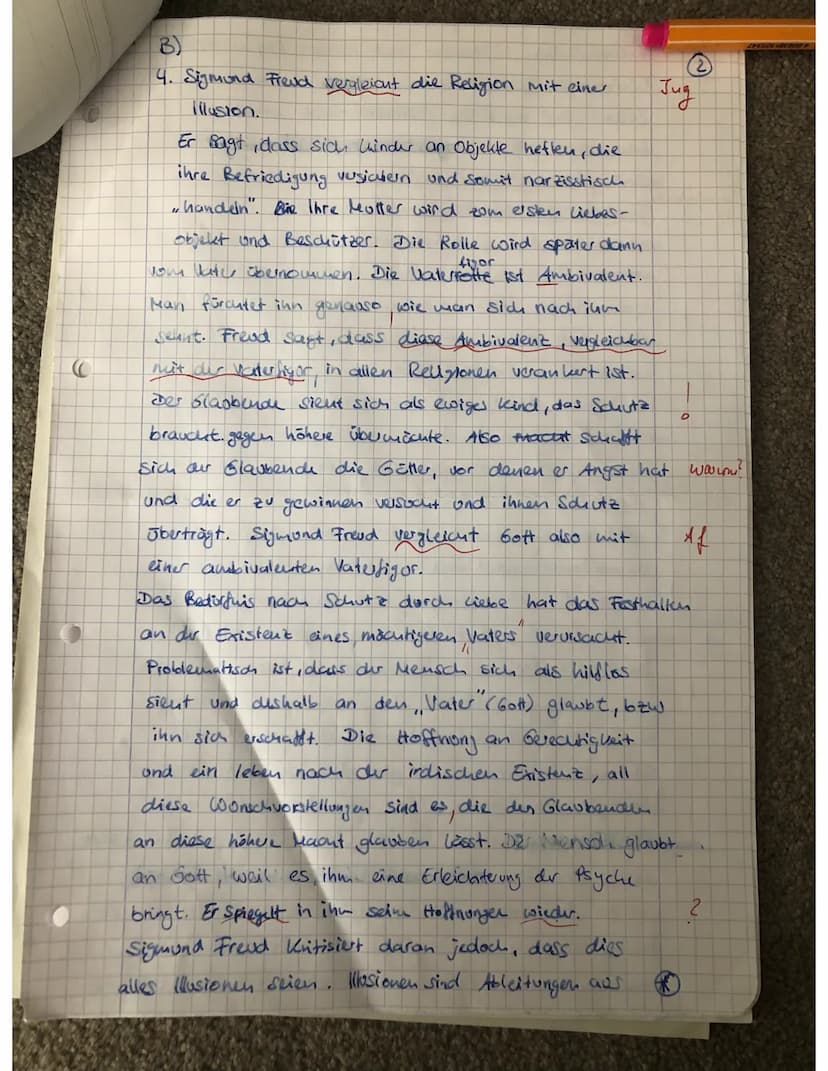 B)
2
4. Sigmund Freud vergleicht die Religion mit einer
Illusion.
Er sagt, dass sich Kinder an Objekte heften, die
ihre Befriedigung versichern und somit narzisstisch
„handeln". Ihre Mutter wird zum ersten Liebes-
objekt und Beschützer. Die Rolle wird später dann
vom Vater übernommen. Die Vaterfigur ist Ambivalent.
Man fürchtet ihn genauso, wie man sich nach ihm
sehnt. Freud sagt, dass diese Ambivalenz, vergleichbar
mit der Vaterfigur, in allen Religionen verankert ist.
Der Glaubende sieht sich als ewiges Kind, das Schutz !
braucht gegen höhere Übermächte. Also macht schafft
sich der Glaubende die Götter, vor denen er Angst hat warum?
und die er zu gewinnen versucht und ihnen Schutz
überträgt. Sigmund Freud vergleicht Gott also mit
einer ambivalenten Vaterfigur.
Das Bedürfnis nach Schutz durch Liebe hat das Festhalten
an der Existenz eines mächtigeren „Vaters" verursacht.
Problematisch ist, dass der Mensch sich als hilflos
sieht und deshalb an den „Vater" (Gott) glaubt, bzw
ihn sich erschafft. Die Hoffnung an Gerechtigkeit
und ein leben nach der irdischen Existenz, all
diese Wunschvorstellungen sind es, die den Glaubenden
an diese höhere Macht glauben lässt. Der Mensch glaubt
an Gott, weil es ihm eine Erleichterung der Psyche
bringt. Er spiegelt in ihm seine Hoffnungen wieder. ?
Sigmund Freud kritisiert daran jedoch, dass dies
alles Illusionen seien. Illusionen sind Ableitungen aus